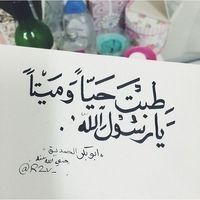 طِبْتَ حَيّاً وَمَيْتاً
يَا رَسُوْلَ اللّٰه .
• ابو بكر الصديق •
رضي الله عنه
@R2v_